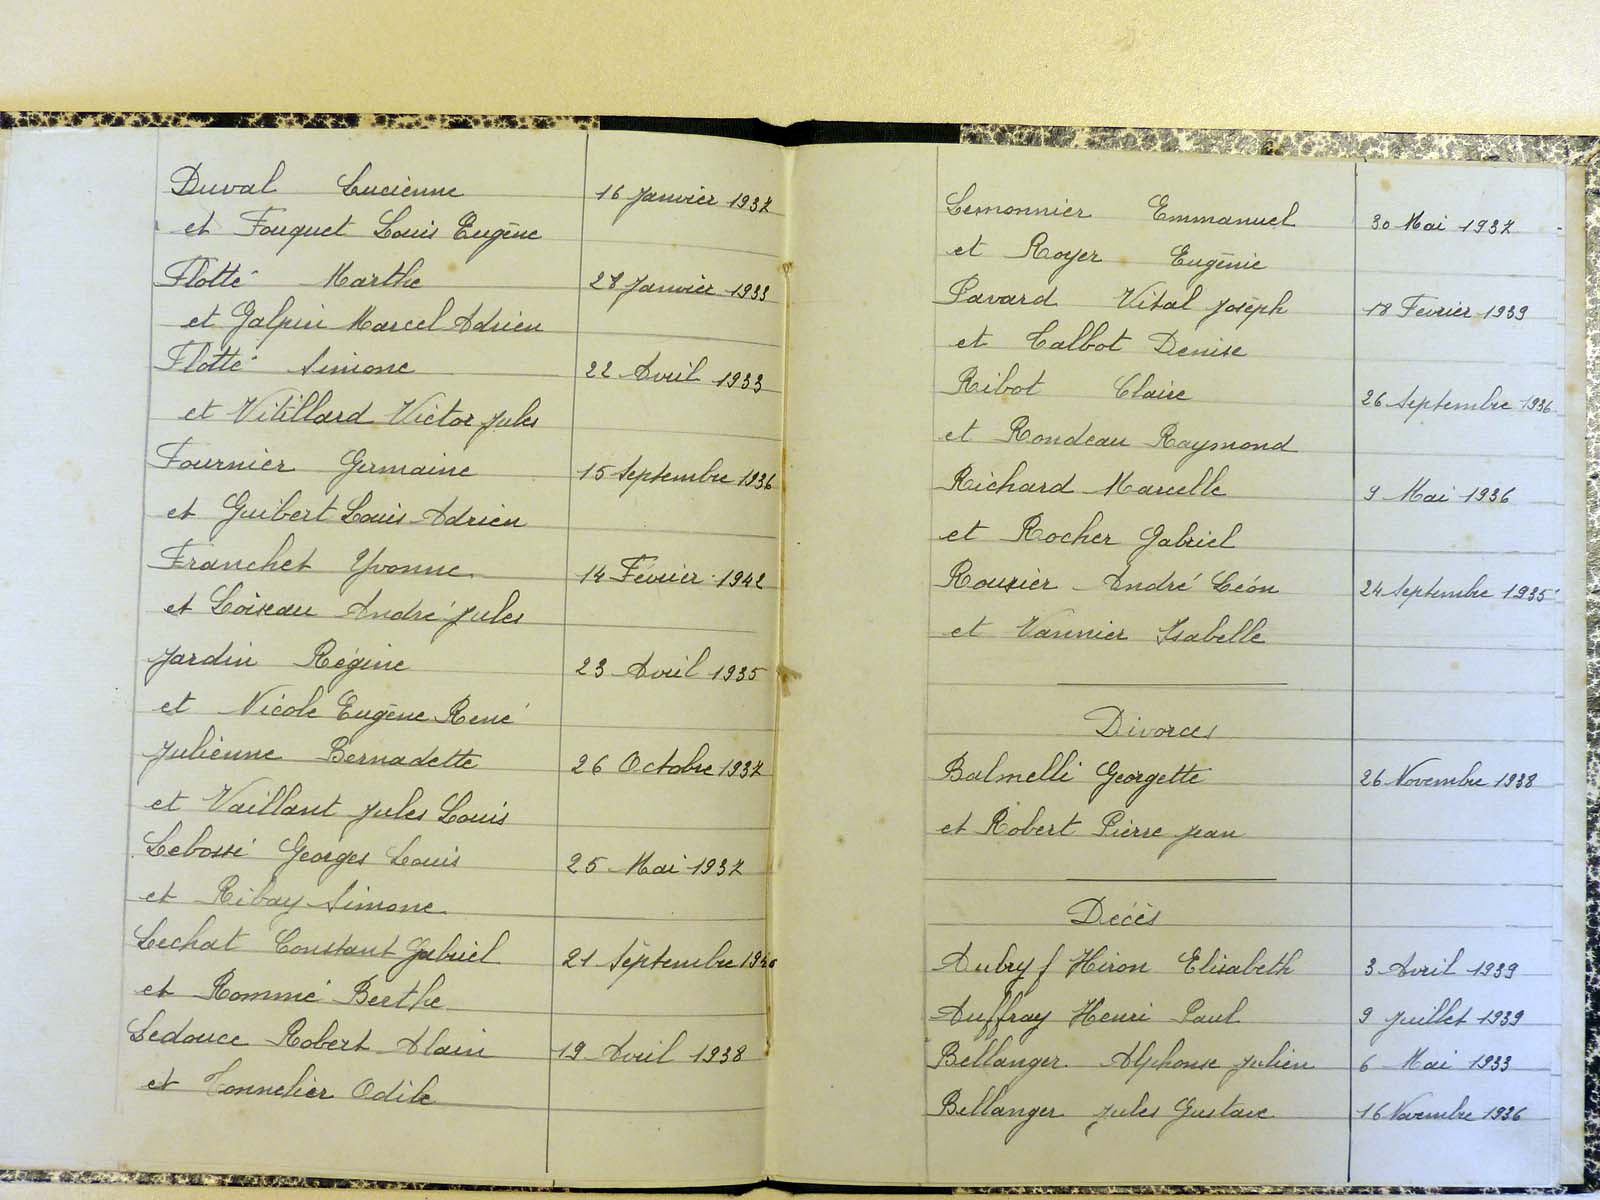 Duval Lucienne 16 Janvier 1937
et Fouquet Louis Eugène
Flotté Marthe 28 Janvier 1933
et Galpin Marcel Adrien
Flotté Simone 22 Avril 1933
et Vitillard Victor Jules
Fournier Germaine 15 Septembre 1936
et Guibert Louis Adrien
Franchet Yvonne 14 Février 1942
et Loiseau André Jules
Jardin Régine 23 Avril 1935
et Nicole Eugène René
Julienne Bernadette 26 Octobre 1937
et Vaillant Jules Louis
Lebossé Georges Louis 25 Mai 1937
et Ribay Simone
Lechat Constant Gabriel 21 Septembre
et Rommé Berthe
Ledouce Robert Alain 19 Avril 1938
et Tonnelier Odile
Lemonnier Emmanuel 30 Mai 1937
et Royer Eugénie
Pavard Vital Joseph 18 Février 1939
et Talbot Denise
Ribot Claire 26 Septembre 1936
et Rondeau Raymond
Richard Marcelle 9 Mai 1936
et Rocher Gabriel
Rousier André Léon 24 Septembre 1935
et Vannier Isabelle
Divorces
Balmelli Georgette 26 Novembre 1938
et Robert Pierre Jean
Décès
Aubry f Hiron Elisabeth 3 Avril 1939
Auffray Henri Paul 9 Juillet 1939
Bellanger Alphonse Julien 6 Mai 1933
Bellanger Jules Gustave 16 Novembre 1936